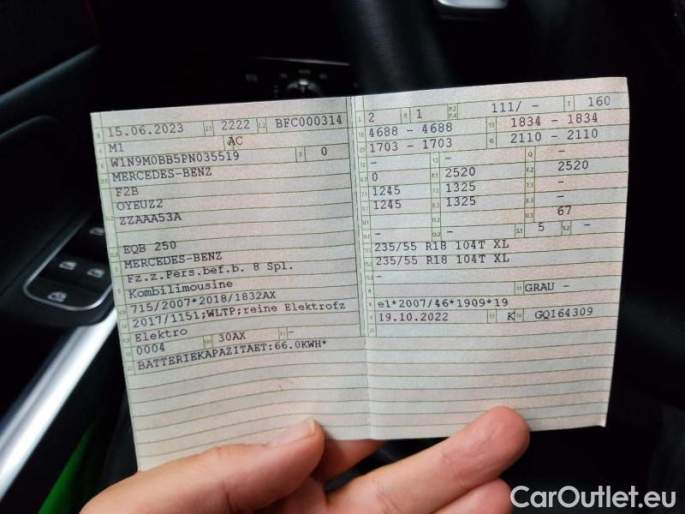 15.06.2023 2222 BFC000314
M1 AC
W1N9M0BB5PN035519 0
MERCEDES-BENZ
F2B
OYEUZ2
ZZAAA53A
EQB 250
MERCEDES-BENZ
Fz.z.Pers.bef.b. 8 Spl.
Kombilimousine
715/2007*2018/1832AX
2017/1151;WLTP;reine Elektrofz
Elektro
0004 30AX -
BATTERIEKAPAZITAET:66.0KWH*
2 1 111/ - 160
4688 - 4688 1834 - 1834
1703 - 1703 2110 - 2110
- - -
0 2520 2520
1245 1325 -
1245 1325 -
67
- - 5 -
235/55 R18 104T XL
235/55 R18 104T XL
-
GRAU -
e1*2007/46*1909*19
19.10.2022 K GQ164309
CarOutlet.eu